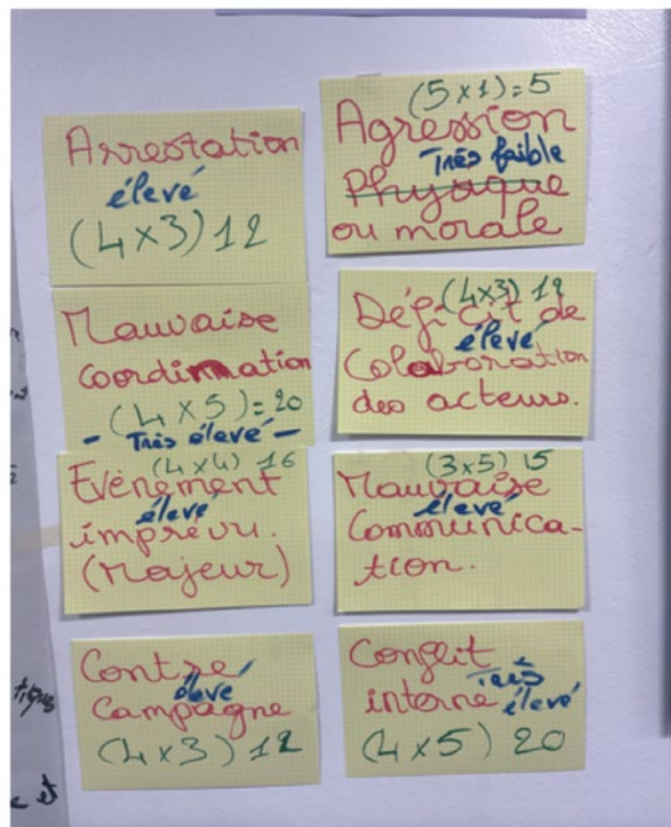 Arrestation
élevé
(4x3) 12
(5x1)=5
Agression
Très faible
Physique
ou morale
Mauvaise
Coordination
(4x5)=20
- Très élevé -
(4x3) 12
Déficit de
élevé
Colaboration
des acteurs.
(4x4) 16
Evènement
élevé
imprévu.
(Majeur)
(3x5) 15
Mauvaise
élevé
Communica-
tion.
Contre
élevé
Campagne
(4x3) 12
Conflit
Très
interne élevé
(4x5) 20